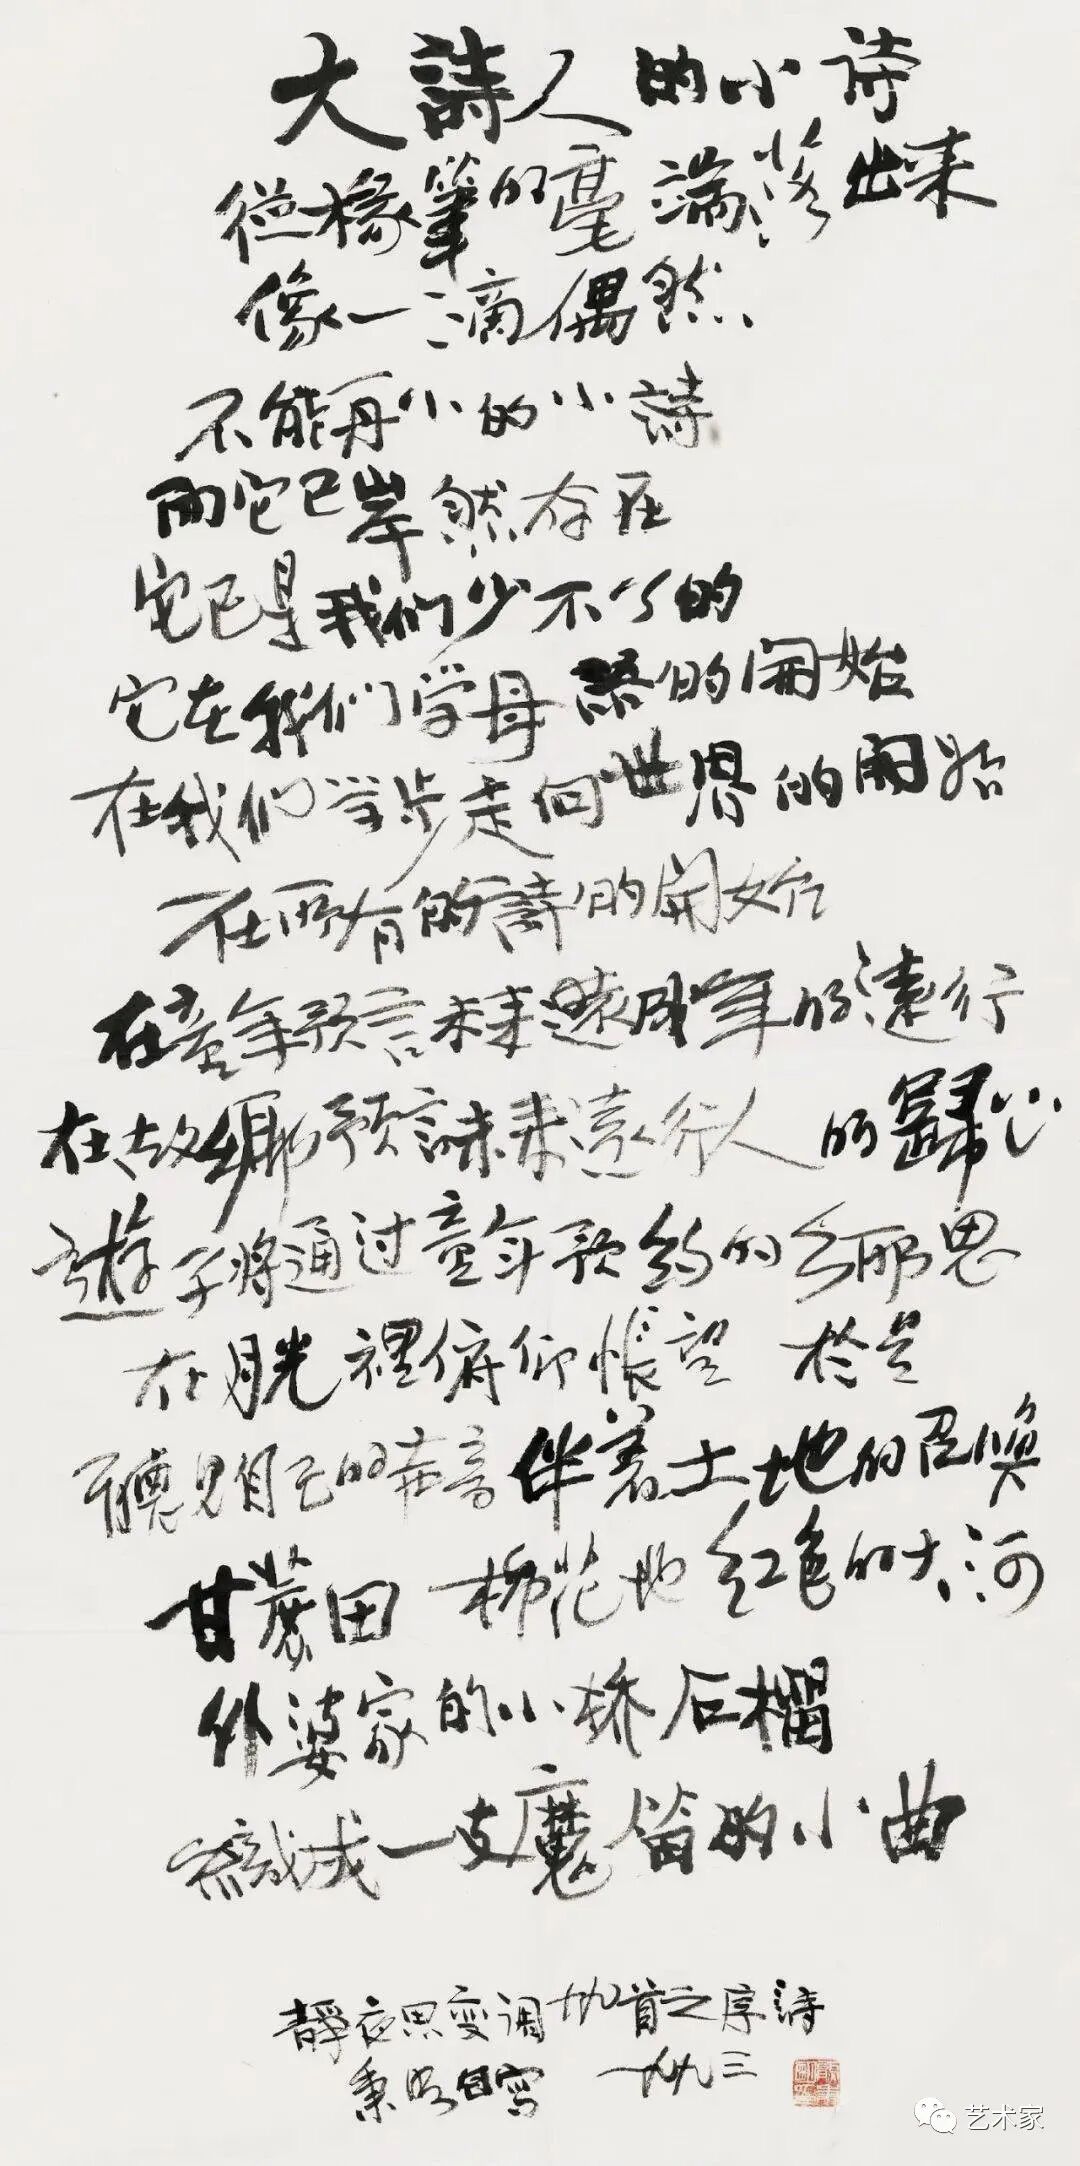 大詩人的小诗
從椽筆的毫端落出来
像一滴偶然
不能再小的小詩
而它已岸然存在
它已是我们少不了的
它在我们学母語的開始
在我们学步走向世界的開始
在所有的詩的開始
在童年预言未来遠成年的遠行
在故鄉预言未来遠行人的歸心
遊子将通过童年预约的乡思
在月光裡俯仰悵望 於是
聽見自己的声音伴着土地的召唤
甘蔗田 棉花地 红色的大河
外婆家的小桥石榴
織成一支魔笛的小曲
靜夜思变调十九首之序詩
秉明自写 一九九三
艺术家